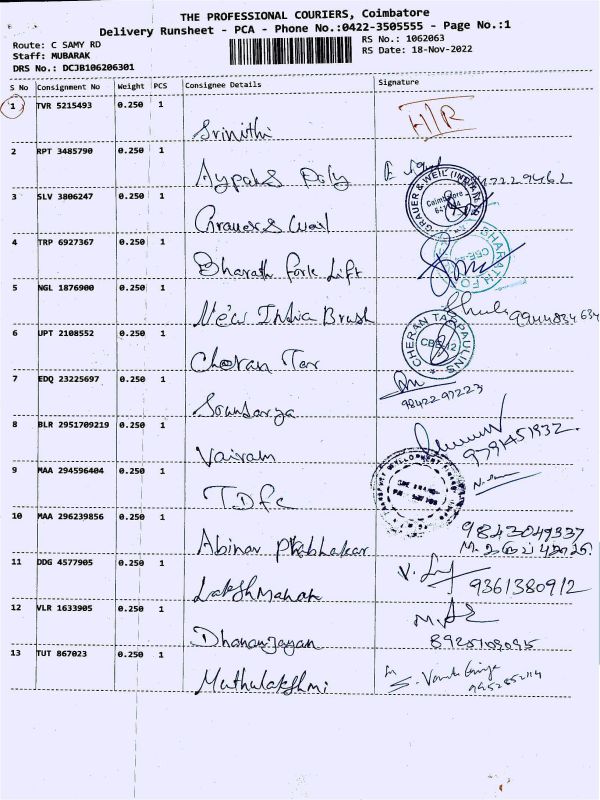 THE PROFESSIONAL COURIERS, Coimbatore
Delivery Runsheet - PCA - Phone No.:0422-3505555 - Page No.:1
Route: C SAMY RD
RS No.: 1062063
Staff: MUBARAK
RS Date: 18-Nov-2022
DRS No.: DCJB106206301
S No Consignment No Weight PCS Consignee Details Signature
1 TVR 5215493 0.250 1
Srinithi H/R
2 RPT 3485790 0.250 1
Aypols Poly
3 SLV 3806247 0.250 1
GRAUER & WEIL (INDIA)
Coimbatore
Grauer & Weil
4 TRP 6927367 0.250 1
BHARATH FO
Bharath Fork Lift
5 NGL 1876900 0.250 1
New India Brush 9944834634
6 UPT 2108552 0.250 1
CHERAN TARPAULINS
CBE-12
Cheran Tar
7 EDQ 23225697 0.250 1
9842297223
Soundarya
8 BLR 2951709219 0.250 1
9791451932
Vairam
9 MAA 294596404 0.250 1
TDFC
10 MAA 296239856 0.250 1
9843049337
Abinav Prabhakar
11 DDG 4577905 0.250 1
Lakshmanan 9361380912
12 VLR 1633905 0.250 1
Dhananjayan
13 TUT 867023 0.250 1
Muthulakshmi